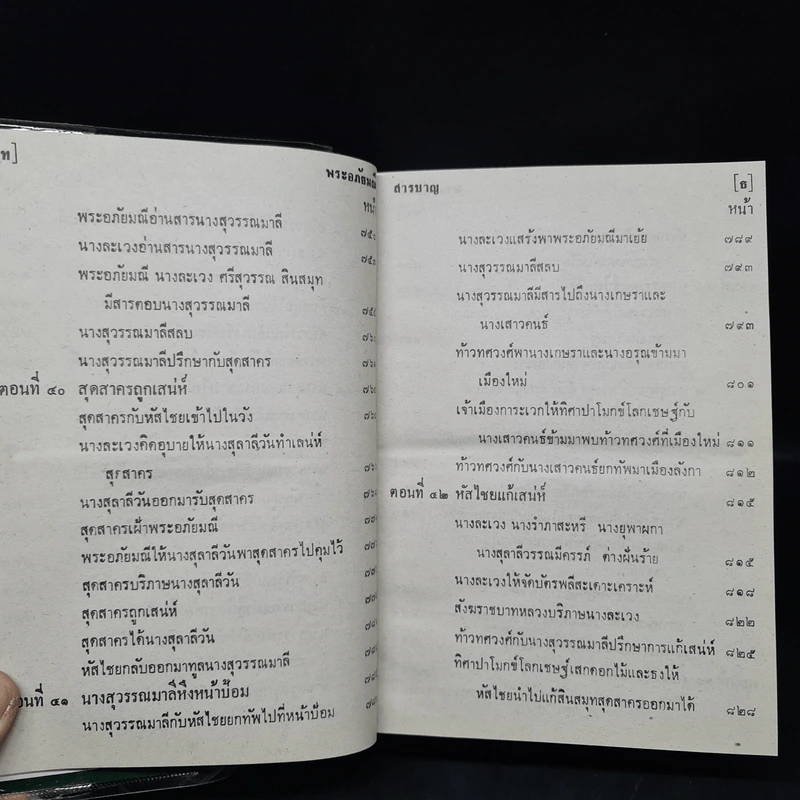 ท]
พระอภัยมณี
หน้า
พระอภัยมณีอ่านสารนางสุวรรณมาลี
นางละเวงอ่านสารนางสุวรรณมาลี
พระอภัยมณี นางละเวง ศรีสุวรรณ สินสมุท
มีสารตอบนางสุวรรณมาลี
นางสุวรรณมาลีสลบ
นางสุวรรณมาลีปรึกษากับสุดสาคร
ตอนที่ ๔๐ สุดสาครถูกเสน่ห์
สุดสาครกับหัสไชยเข้าไปในวัง
นางละเวงคิดอุบายให้นางสุลาลีวันทำเสน่ห์
สุดสาคร
นางสุลาลีวันออกมารับสุดสาคร
สุดสาครเฝ้าพระอภัยมณี
พระอภัยมณีให้นางสุลาลีวันพาสุดสาครไปคุมไว้
สุดสาครบริภาษนางสุลาลีวัน
สุดสาครถูกเสน่ห์
สุดสาครได้นางสุลาลีวัน
หัสไชยกลับออกมาทูลนางสุวรรณมาลี
อนที่ ๔๑ นางสุวรรณมาลีหึงหน้าป้อม
นางสุวรรณมาลีกับหัสไชยยกทัพไปที่หน้าป้อม
สารบาญ [ธ]
หน้า
นางละเวงแสร้งพาพระอภัยมณีมาเย้ย ๗๘๙
นางสุวรรณมาลีสลบ ๗๙๓
นางสุวรรณมาลีมีสารไปถึงนางเกษราและ
นางเสาวคนธ์ ๗๙๓
ท้าวทศวงศ์พานางเกษราและนางอรุณข้ามมา
เมืองใหม่ ๘๐๑
เจ้าเมืองการะเวกให้ทิศาปาโมกข์โลกเชษฐ์กับ
นางเสาวคนธ์ข้ามมาพบท้าวทศวงศ์ที่เมืองใหม่ ๘๑๑
ท้าวทศวงศ์กับนางเสาวคนธ์ยกทัพมาเมืองลังกา ๘๑๒
ตอนที่ ๔๒ หัสไชยแก้เสน่ห์ ๘๑๕
นางละเวง นางรำภาสะหรี นางยุพาผกา
นางสุลาลีวรรณมีครรภ์ ต่างฝันร้าย ๘๑๕
นางละเวงให้จัดบัตรพลีสะเดาะเคราะห์ ๘๑๘
สังฆราชบาทหลวงบริภาษนางละเวง ๘๒๒
ท้าวทศวงศ์กับนางสุวรรณมาลีปรึกษาการแก้เสน่ห์ ๘๒๕
ทิศาปาโมกข์โลกเชษฐ์เสกดอกไม้และธงให้
หัสไชยนำไปแก้สินสมุทสุดสาครออกมาได้ ๘๒๘